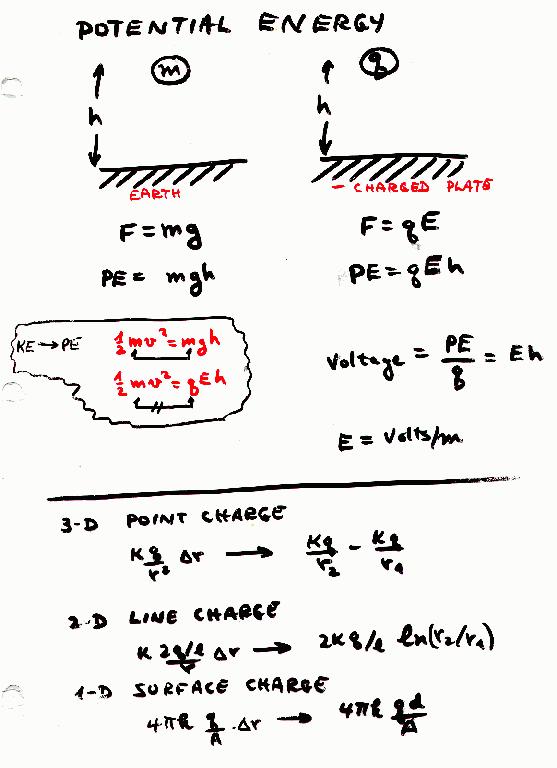 POTENTIAL ENERGY
m
q
h
h
EARTH
- CHARGED PLATE
F = mg
F = qE
PE = mgh
PE = qEh
KE → PE
½mv² = mgh
½mv² = qEh
Voltage = PE/q = Eh
E = Volts/m
3-D POINT CHARGE
Kq/r² Δr → Kq/r₂ - Kq/r₁
2-D LINE CHARGE
K 2q/l/r Δr → 2Kq/l ln(r₂/r₁)
1-D SURFACE CHARGE
4πk q/A · Δr → 4πk qd/A